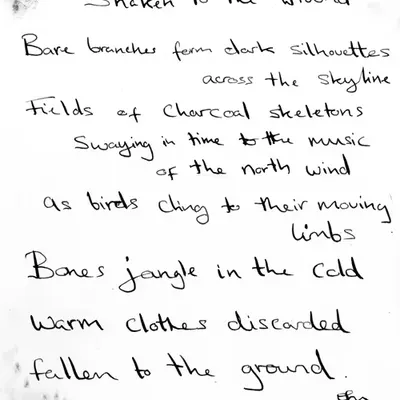 Shaken to the ground
Bare branches form dark silhouettes
across the skyline
Fields of charcoal skeletons
Swaying in time to the music
of the north wind
as birds cling to their moving
limbs
Bones jangle in the cold
warm clothes discarded
fallen to the ground.